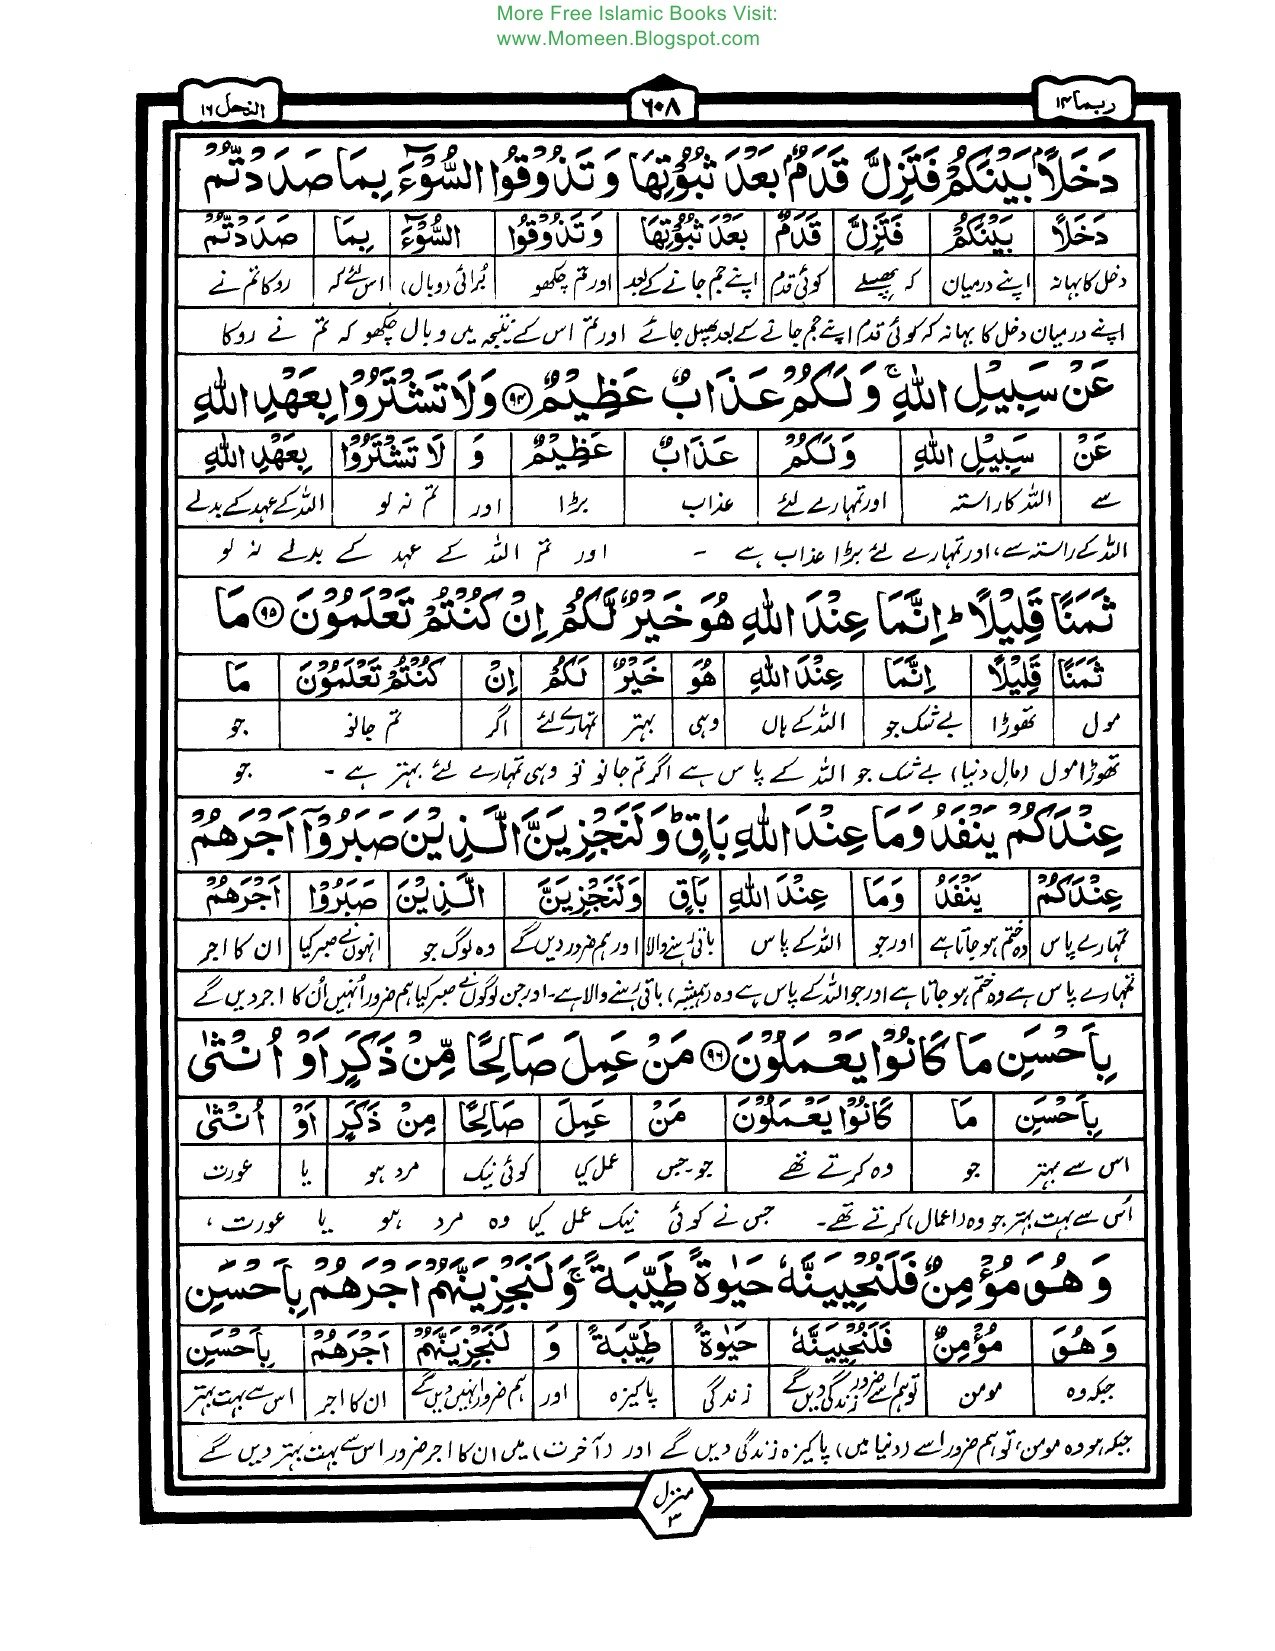 More Free Islamic Books Visit:
www.Momeen.Blogspot.com
ربما ۱۴
۶۰۸
النحل ۱۶
دَخَلًاۢ بَيْنَكُمْ فَتَزِلَّ قَدَمٌۢ بَعْدَ ثُبُوْتِهَا وَ تَذُوْقُوا السُّوْٓءَ بِمَا صَدَدْتُّمْ
دَخَلًا بَيْنَكُمْ فَتَزِلَّ قَدَمٌ بَعْدَ ثُبُوْتِهَا وَ تَذُوْقُوا السُّوْٓءَ بِمَا صَدَدْتُّمْ
دخل کا بہانہ اپنے درمیان کہ پھسلے کوئی قدم اپنے جم جانے کے بعد اور تم چکھو بُرائی (وبال) اس لئے کہ روکا تم نے
اپنے درمیان دخل کا بہانہ کہ کوئی قدم اپنے جم جانے کے بعد پھسل جائے اور تم اس کے نتیجہ میں وبال چکھو کہ تم نے روکا
عَنْ سَبِيْلِ اللّٰهِ ۚ وَ لَكُمْ عَذَابٌ عَظِيْمٌ ﴿۹۴﴾ وَلَا تَشْتَرُوْا بِعَهْدِ اللّٰهِ
عَنْ سَبِيْلِ اللّٰهِ وَ لَكُمْ عَذَابٌ عَظِيْمٌ وَ لَا تَشْتَرُوْا بِعَهْدِ اللّٰهِ
سے اللہ کا راستہ اور تمہارے لئے عذاب بڑا اور تم نہ لو اللہ کے عہد کے بدلے
اللہ کے راستہ سے، اور تمہارے لئے بڑا عذاب ہے ۔ اور تم اللہ کے عہد کے بدلے نہ لو
ثَمَنًا قَلِيْلًا ؕ اِنَّمَا عِنْدَ اللّٰهِ هُوَ خَيْرٌ لَّكُمْ اِنْ كُنْتُمْ تَعْلَمُوْنَ ﴿۹۵﴾ مَا
ثَمَنًا قَلِيْلًا اِنَّمَا عِنْدَ اللّٰهِ هُوَ خَيْرٌ لَكُمْ اِنْ كُنْتُمْ تَعْلَمُوْنَ مَا
مول تھوڑا بے شک جو اللہ کے ہاں وہی بہتر تمہارے لئے اگر تم جانو جو
تھوڑا مول (مال دنیا) بے شک جو اللہ کے پاس ہے اگر تم جانو تو وہی تمہارے لئے بہتر ہے ۔ جو
عِنْدَكُمْ يَنْفَدُ وَمَا عِنْدَ اللّٰهِ بَاقٍ ؕ وَلَنَجْزِيَنَّ الَّذِيْنَ صَبَرُوْۤا اَجْرَهُمْ
عِنْدَكُمْ يَنْفَدُ وَمَا عِنْدَ اللّٰهِ بَاقٍ وَلَنَجْزِيَنَّ الَّذِيْنَ صَبَرُوْا اَجْرَهُمْ
تمہارے پاس وہ ختم ہو جاتا ہے اور جو اللہ کے پاس باقی رہنے والا اور ہم ضرور دیں گے وہ لوگ جو انہوں نے صبر کیا ان کا اجر
تمہارے پاس ہے وہ ختم ہو جاتا ہے اور جو اللہ کے پاس ہے وہ (ہمیشہ) باقی رہنے والا ہے ۔ اور جن لوگوں نے صبر کیا ہم ضرور اُنہیں اُن کا اجر دیں گے
بِاَحْسَنِ مَا كَانُوْا يَعْمَلُوْنَ ﴿۹۶﴾ مَنْ عَمِلَ صَالِحًا مِّنْ ذَكَرٍ اَوْ اُنْثٰى
بِاَحْسَنِ مَا كَانُوْا يَعْمَلُوْنَ مَنْ عَمِلَ صَالِحًا مِنْ ذَكَرٍ اَوْ اُنْثٰى
اس سے بہتر جو وہ کرتے تھے جو۔جس عمل کیا کوئی نیک مرد ہو یا عورت
اُس سے بہت بہتر جو وہ (اعمال) کرتے تھے۔ جس نے کوئی نیک عمل کیا وہ مرد ہو یا عورت ،
وَ هُوَ مُؤْمِنٌ فَلَنُحْيِيَنَّهٗ حَيٰوةً طَيِّبَةً ۚ وَلَنَجْزِيَنَّهُمْ اَجْرَهُمْ بِاَحْسَنِ
وَ هُوَ مُؤْمِنٌ فَلَنُحْيِيَنَّهٗ حَيٰوةً طَيِّبَةً وَ لَنَجْزِيَنَّهُمْ اَجْرَهُمْ بِاَحْسَنِ
جبکہ وہ مومن تو ہم اسے ضرور زندگی دیں گے زندگی پاکیزہ اور ہم ضرور انہیں دیں گے ان کا اجر اس سے بہت بہتر
جبکہ ہو وہ مومن، تو ہم ضرور اسے (دنیا میں) پاکیزہ زندگی دیں گے اور (آخرت) میں ان کا اجر ضرور اس سے بہت بہتر دیں گے
منزل ۳